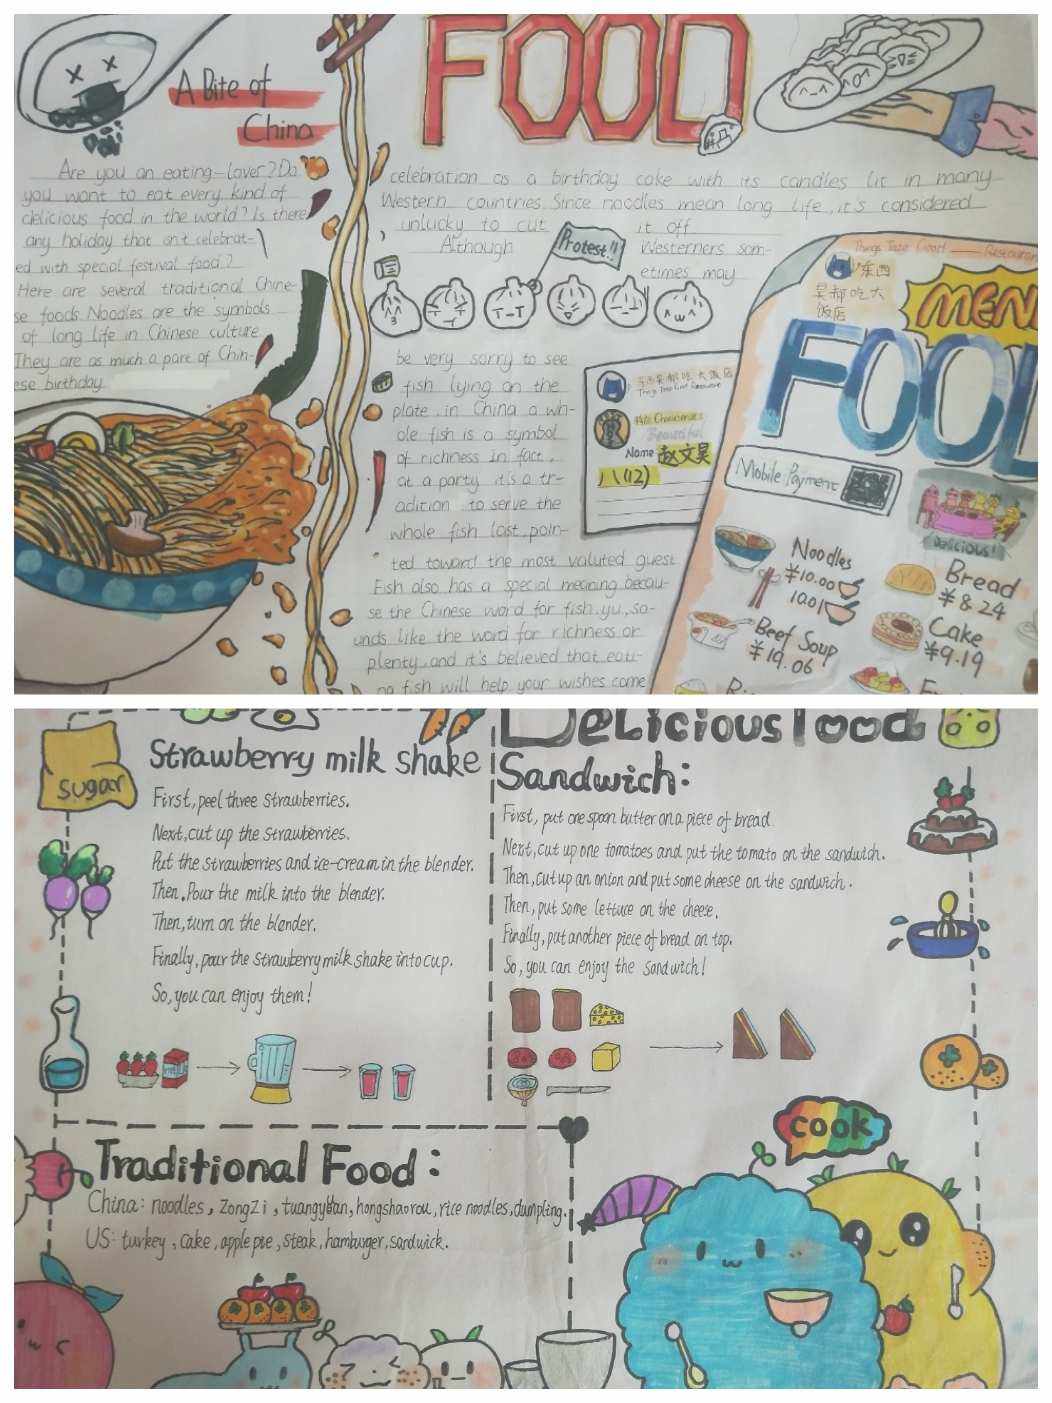 A Bite of
China
FOOD
Are you an eating-lover? Do
you want to eat every kind of
delicious food in the world? Is there
any holiday that isn't celebrat-
ed with special festival food?
Here are several traditional Chine-
se foods Noodles are the symbols
of long life in Chinese culture
They are as much a part of Chin-
ese birthday
celebration as a birthday cake with its candles lit in many
Western countries. Since noodles mean long life, it's considered
unlucky to cut it off
Although Westerners som-
etimes may
Protest!!
be very sorry to see
fish lying on the
plate, in China a wh-
ole fish is a symbol
of richness in fact,
at a party it's a tr-
adition to serve the
whole fish last, poin-
ted toward the most valuted guest
Fish also has a special meaning becau-
se the Chinese word for fish, yu, so-
unds like the word for richness or
plenty, and it's believed that eati-
ng fish will help your wishes come
东西昊都吃大饭店
Name 赵文昊
八(12)
Things Taste Good Restauran
东西
昊都吃大
饭店
MEN
FOOD
Mobile Payment
Delicious!
Noodles
¥10.00
10.01
Bread
¥8.24
Beef Soup
¥19.06
Cake
¥9.19
sugar
Strawberry milk shake
First, peel three strawberries.
Next, cut up the strawberries.
Put the strawberries and ice-cream in the blender.
Then, Pour the milk into the blender.
Then, turn on the blender.
Finally, pour the strawberry milk shake into cup.
So, you can enjoy them!
Delicious food
Sandwich:
First, put one spoon butter on a piece of bread.
Next, cut up one tomatoes and put the tomato on the sandwich.
Then, cut up an onion and put some cheese on the sandwich.
Then, put some lettuce on the cheese.
Finally, put another piece of bread on top.
So, you can enjoy the sandwich!
Traditional Food:
China: noodles, ZongZi, tuangyuan, hongshaorou, rice noodles, dumpling.
US: turkey, cake, apple pie, steak, hamburger, sandwick.
cook